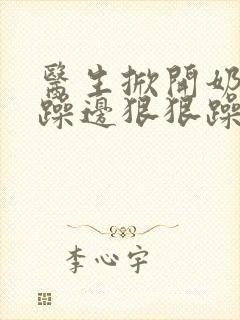 醫生掀開奶
躁邊狠狠躁
李心宇